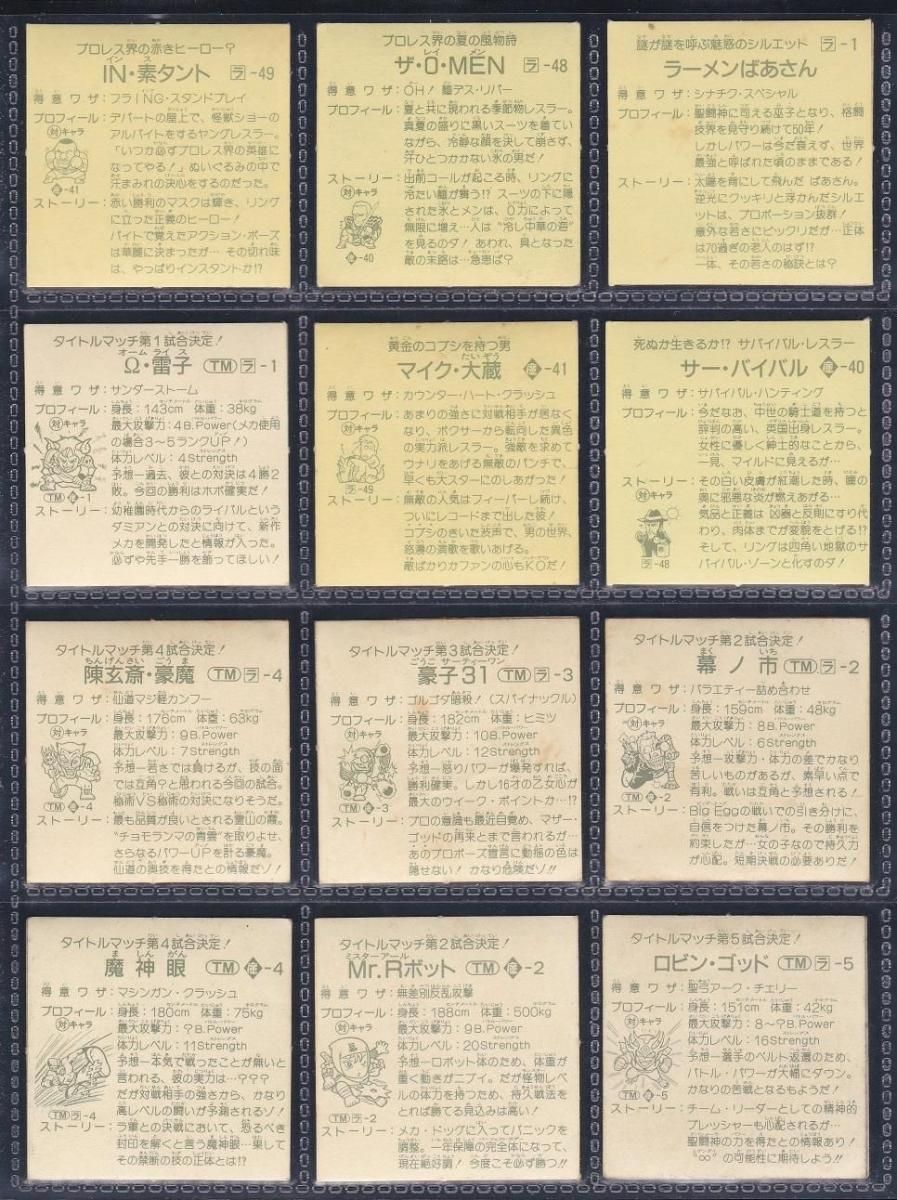 プロレス界の赤きヒーロー?
IN・素タント ラ-49
得意ワザ:フラING・スタンドプレイ
プロフィール:デパートの屋上で、怪獣ショーの
アルバイトをするヤングレスラー。
「いつか必ずプロレス界の英雄に
なってやる!」ぬいぐるみの中で
汗まみれの決心をするのだった。
対キャラ
-41
ストーリー:赤い勝利のマスクは輝き、リング
に立った正義のヒーロー!
バイトで覚えたアクション・ポーズ
は華麗に決まったが…その切れ味
は、やっぱりインスタントか!?
プロレス界の夏の風物詩
ザ・O・MEN ラ-48
得意ワザ:OH!麺デス・リバー
プロフィール:夏と共に現われる季節物レスラー。
真夏の盛りに黒いスーツを着てい
ながら、冷静な顔を決して崩さず、
汗ひとつかかない氷の男だ!
ストーリー:出前コールが起こる時、リングに
対キャラ
冷たい麺が舞う!?スーツの下に隠
された氷とメンは、O力によって
無限に増え…人は“冷し中華の渦”
を見るのだ!あわれ、具となった
敵の末路は…急患ば?
-40
謎が謎を呼ぶ魅惑のシルエット
ラーメンばあさん ラ-1
得意ワザ:シナチク・スペシャル
プロフィール:聖闘神に司える巫子となり、格闘
技界を見守り続けて50年!
しかしパワーは今だ衰えず、世界
最強と呼ばれた頃のままである!
ストーリー:太陽を背にして飛んだばあさん。
逆光にクッキリと浮かんだシルエ
ットは、プロポーション抜群!
意外な若さにビックリだが…正体
は70過ぎの老人のはず!?
一体、その若さの秘訣とは?
タイトルマッチ第1試合決定!
Ω・雷子 TM ラ-1
得意ワザ:サンダーストーム
プロフィール:身長:143cm 体重:38kg
対キャラ
最大攻撃力:4B.Power(メカ使用
の場合3〜5ランクUP!)
体力レベル:4Strength
予想ー過去、彼との対決は4勝2
敗。今回の勝利はホボ確実だ!
TM -1
ストーリー:幼稚園時代からのライバルという
ダミアンとの対決に向けて、新作
メカを開発したと情報が入った。
必ずや先手一勝を飾ってほしい!
黄金のコブシを持つ男
マイク・大蔵 -41
得意ワザ:カウンター・ハート・クラッシュ
プロフィール:あまりの強さに対戦相手が居なく
対キャラ
なり、ボクサーから転向した異色
の実力派レスラー。強敵を求めて
ウナリをあげる無敵のパンチで、
早くも大スターにのしあがった!
ラ-49
ストーリー:無敵の人気はフィーバーし続け、
ついにレコードまで出した彼!
コブシのきいた波声で、男の世界、
怒濤の演歌を歌いあげる。
敵ばかりかファンの心もKOだ!
死ぬか生きるか!?サバイバル・レスラー
サー・バイバル -40
得意ワザ:サバイバル・ハンティング
プロフィール:今だなお、中世の騎士道を持つと
評判の高い、英国出身レスラー。
女性に優しく紳士的なことから、
一見、マイルドに見えるが…
ストーリー:その白い皮膚が紅潮した時、瞳の
対キャラ
奥に邪悪な炎が燃えあがる…
気品と正義は凶器と反則にすり代
わり、肉体までが変貌をとげる!?
そして、リングは四角い地獄のサ
バイバル・ゾーンと化すのダ!
ラ-48
タイトルマッチ第4試合決定!
陳玄斎・豪魔 TM ラ-4
得意ワザ:仙道マジ軽カンフー
プロフィール:身長:176cm 体重:63kg
対キャラ
最大攻撃力:9B.Power
体力レベル:7Strength
予想ー若さでは負けるが、技の面
では互角?と思われる今回の試合。
秘術VS秘術の対決になりそうだ。
TM -4
ストーリー:最も品質が良いとされる霊山の霧。
“チョモランマの青雲”を取りよせ、
さらなるパワーUPを計る豪魔。
仙道の奥技を得たとの情報だゾ!
タイトルマッチ第3試合決定!
豪子31 TM ラ-3
得意ワザ:ゴルゴダ暗殺!(スパイナックル)
プロフィール:身長:182cm 体重:ヒミツ
対キャラ
最大攻撃力:10B.Power
体力レベル:12Strength
予想ー怒りパワーが爆発すれば、
勝利確実。しかし16才の乙女心が
最大のウイーク・ポイントか…!?
TM -3
ストーリー:プロの意識も最近目覚め、マザー・
ゴッドの再来とまで言われるが…
あのプロポーズ宣言に動揺の色は
隠せない!かなり危険だゾ!!
タイトルマッチ第2試合決定!
幕ノ市 TM ラ-2
得意ワザ:バラエティー詰め合わせ
プロフィール:身長:159cm 体重:48kg
対キャラ
最大攻撃力:8B.Power
体力レベル:6Strength
予想ー攻撃力・体力の差でかなり
苦しいものがあるが、素早い点で
有利。戦いは互角と予想される!
TM -2
ストーリー:Big Eggの戦いでの引き分けに、
自信をつけた幕ノ市。その勝利を
約束したが…女の子なので持久力
が心配。短期決戦の必要ありだ!
タイトルマッチ第4試合決定!
魔神眼 TM -4
得意ワザ:マシンガン・クラッシュ
プロフィール:身長:180cm 体重:75kg
対キャラ
最大攻撃力:?B.Power
体力レベル:11Strength
予想ー本気で戦ったことが無いと
言われる、彼の実力は…???
だが対戦相手の強さから、かなり
高レベルの闘いが予測されるゾ!
TM ラ-4
ストーリー:ラ軍との決戦において、恐るべき
封印を解くと言う魔神眼…果して
その禁断の技の正体とは!?
タイトルマッチ第2試合決定!
Mr.Rボット TM -2
得意ワザ:無差別反乱攻撃
プロフィール:身長:188cm 体重:500kg
対キャラ
最大攻撃力:9B.Power
体力レベル:20Strength
予想ーロボット体のため、体重が
重く動きがニブイ。だが怪物レベ
ルの体力を持つため、持久戦法を
とれば勝てる見込みは高い!
TM ラ-2
ストーリー:メカ・ドッグに入ってパニックを
調整。一年保障の完全体になって、
現在絶好調!今度こそ必ず勝つ!!
タイトルマッチ第5試合決定!
ロビン・ゴッド TM ラ-5
得意ワザ:聖弓アーク・チェリー
プロフィール:身長:151cm 体重:42kg
対キャラ
最大攻撃力:8〜?B.Power
体力レベル:16Strength
予想ー選手のベルト返還のため、
バトル・パワーが大幅にダウン。
かなりの苦戦となるもようだ!
TM -5
ストーリー:チーム・リーダーとしての精神的
プレッシャーも心配されるが…
聖闘神の力を得たとの情報あり!
“∞”の可能性に期待しよう!!